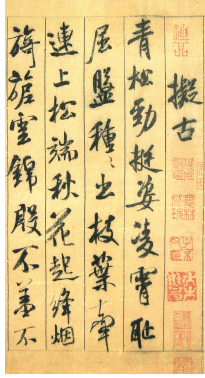 擬古
青松勁挺姿凌霄恥
屈盤種種出枝葉牽
連上松端秋花起絳烟
旖旎雲錦殷不羞不